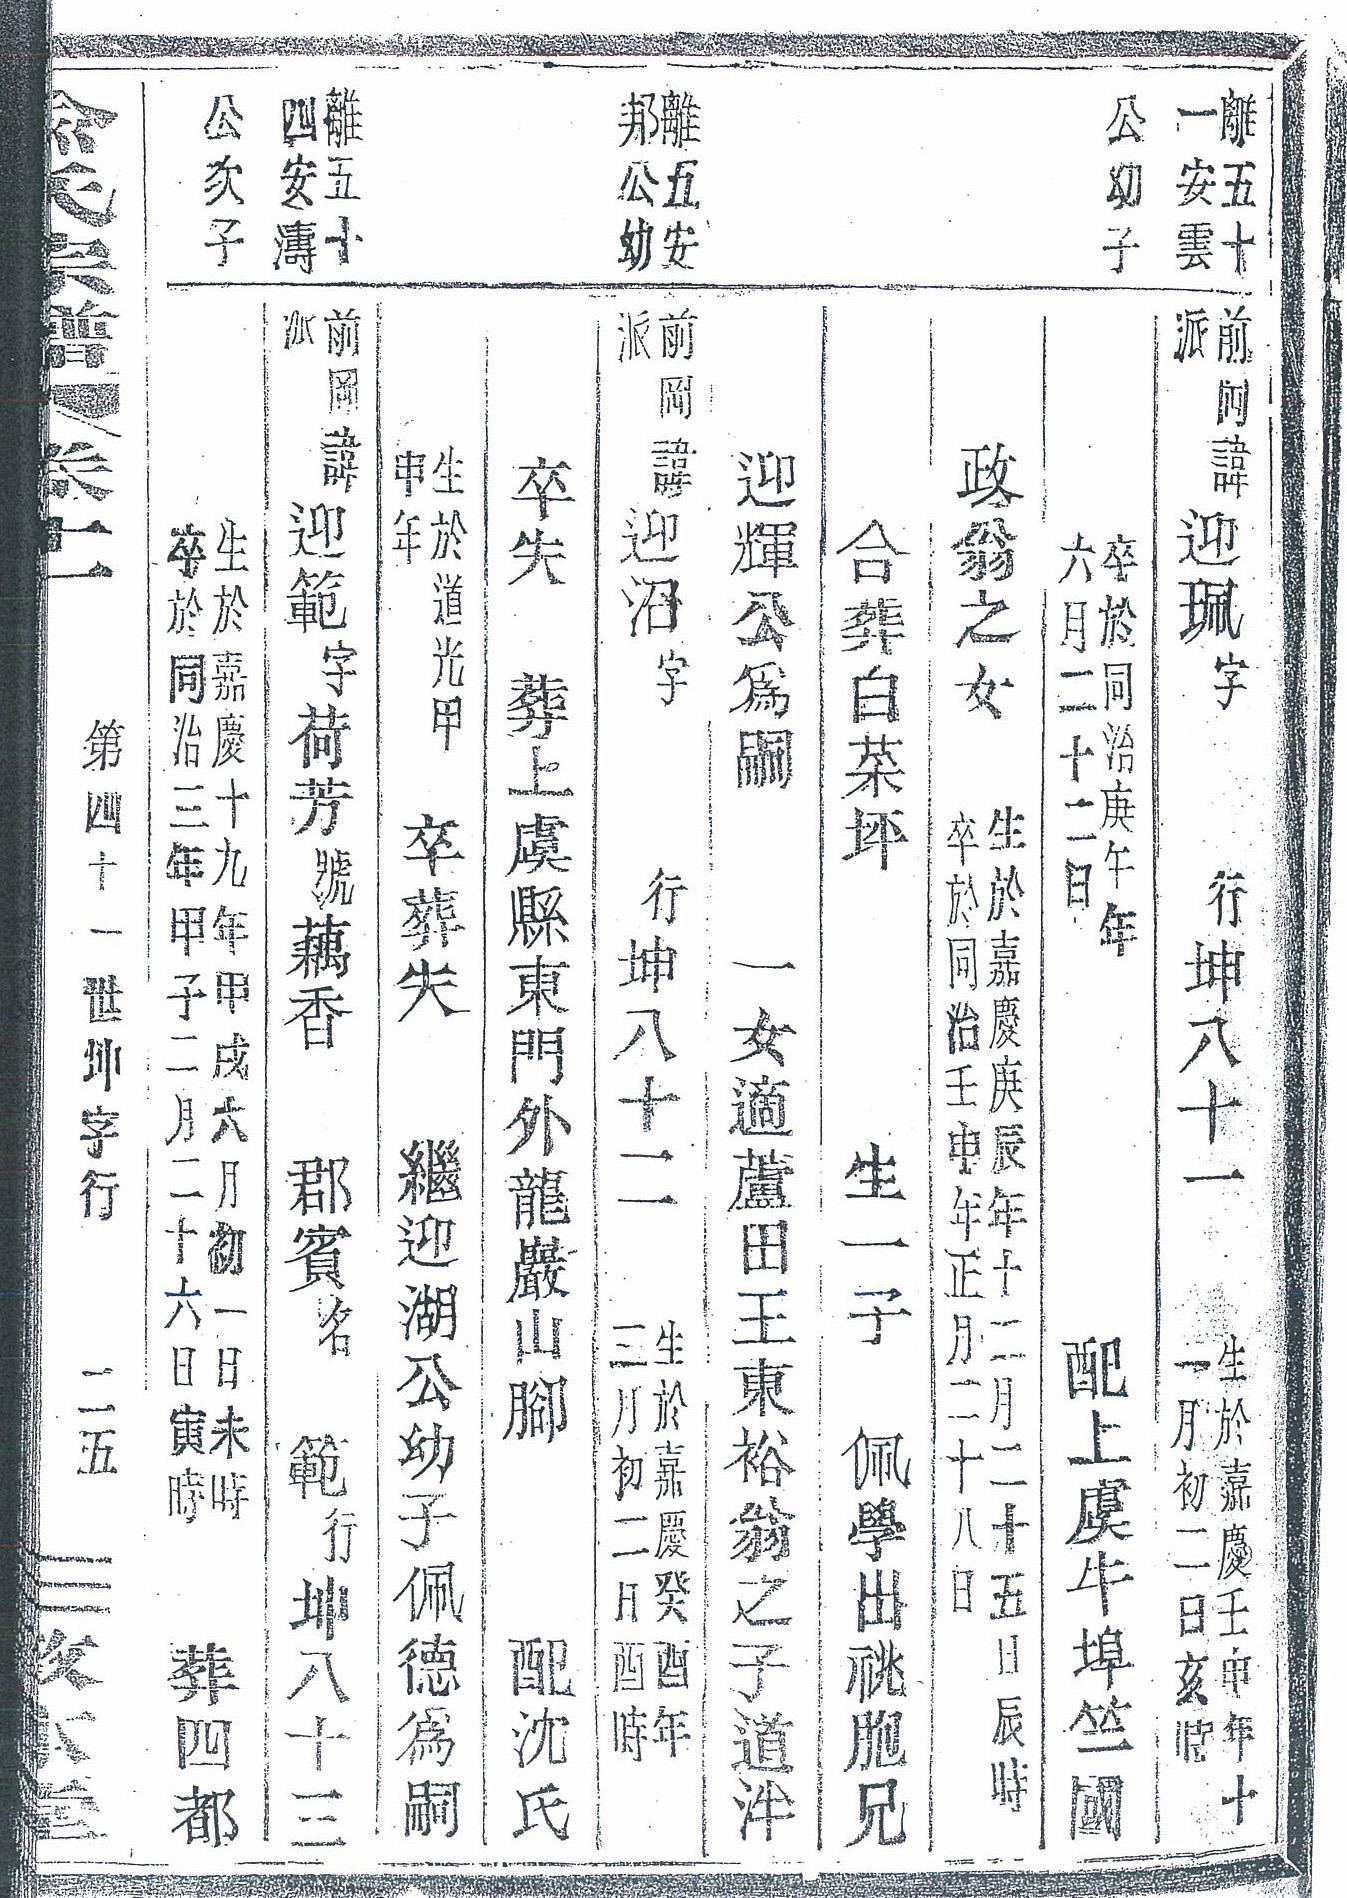 離五十
一安雲
公幼子
前岡諱迎珮字　行坤八十一　生於嘉慶壬申年十
派　一月初二日亥時
卒於同治庚午年
六月二十二日　配上虞牛埠竺國
政翁之女　生於嘉慶庚辰年十二月二十五日辰時
卒於同治壬申年正月二十八日
合葬白菜坪　生一子　佩學出祧胞兄
迎輝公為嗣　一女適蘆田王東裕翁之子道泮
離五安
邦公幼
前岡諱迎沼字　行坤八十二　生於嘉慶癸酉年
派　三月初二日酉時
卒失　葬上虞縣東門外龍巖山腳　配沈氏
生於道光甲
申年　卒葬失　繼迎湖公幼子佩德為嗣
離五十
四安濤
公次子
前岡諱迎範字荷芳號藕香　郡賓名　範行坤八十三
派
生於嘉慶十九年甲戌六月初一日未時
卒於同治三年甲子二月二十六日寅時　葬四都
氏宗譜　卷十一　第四十一世坤字行　二五